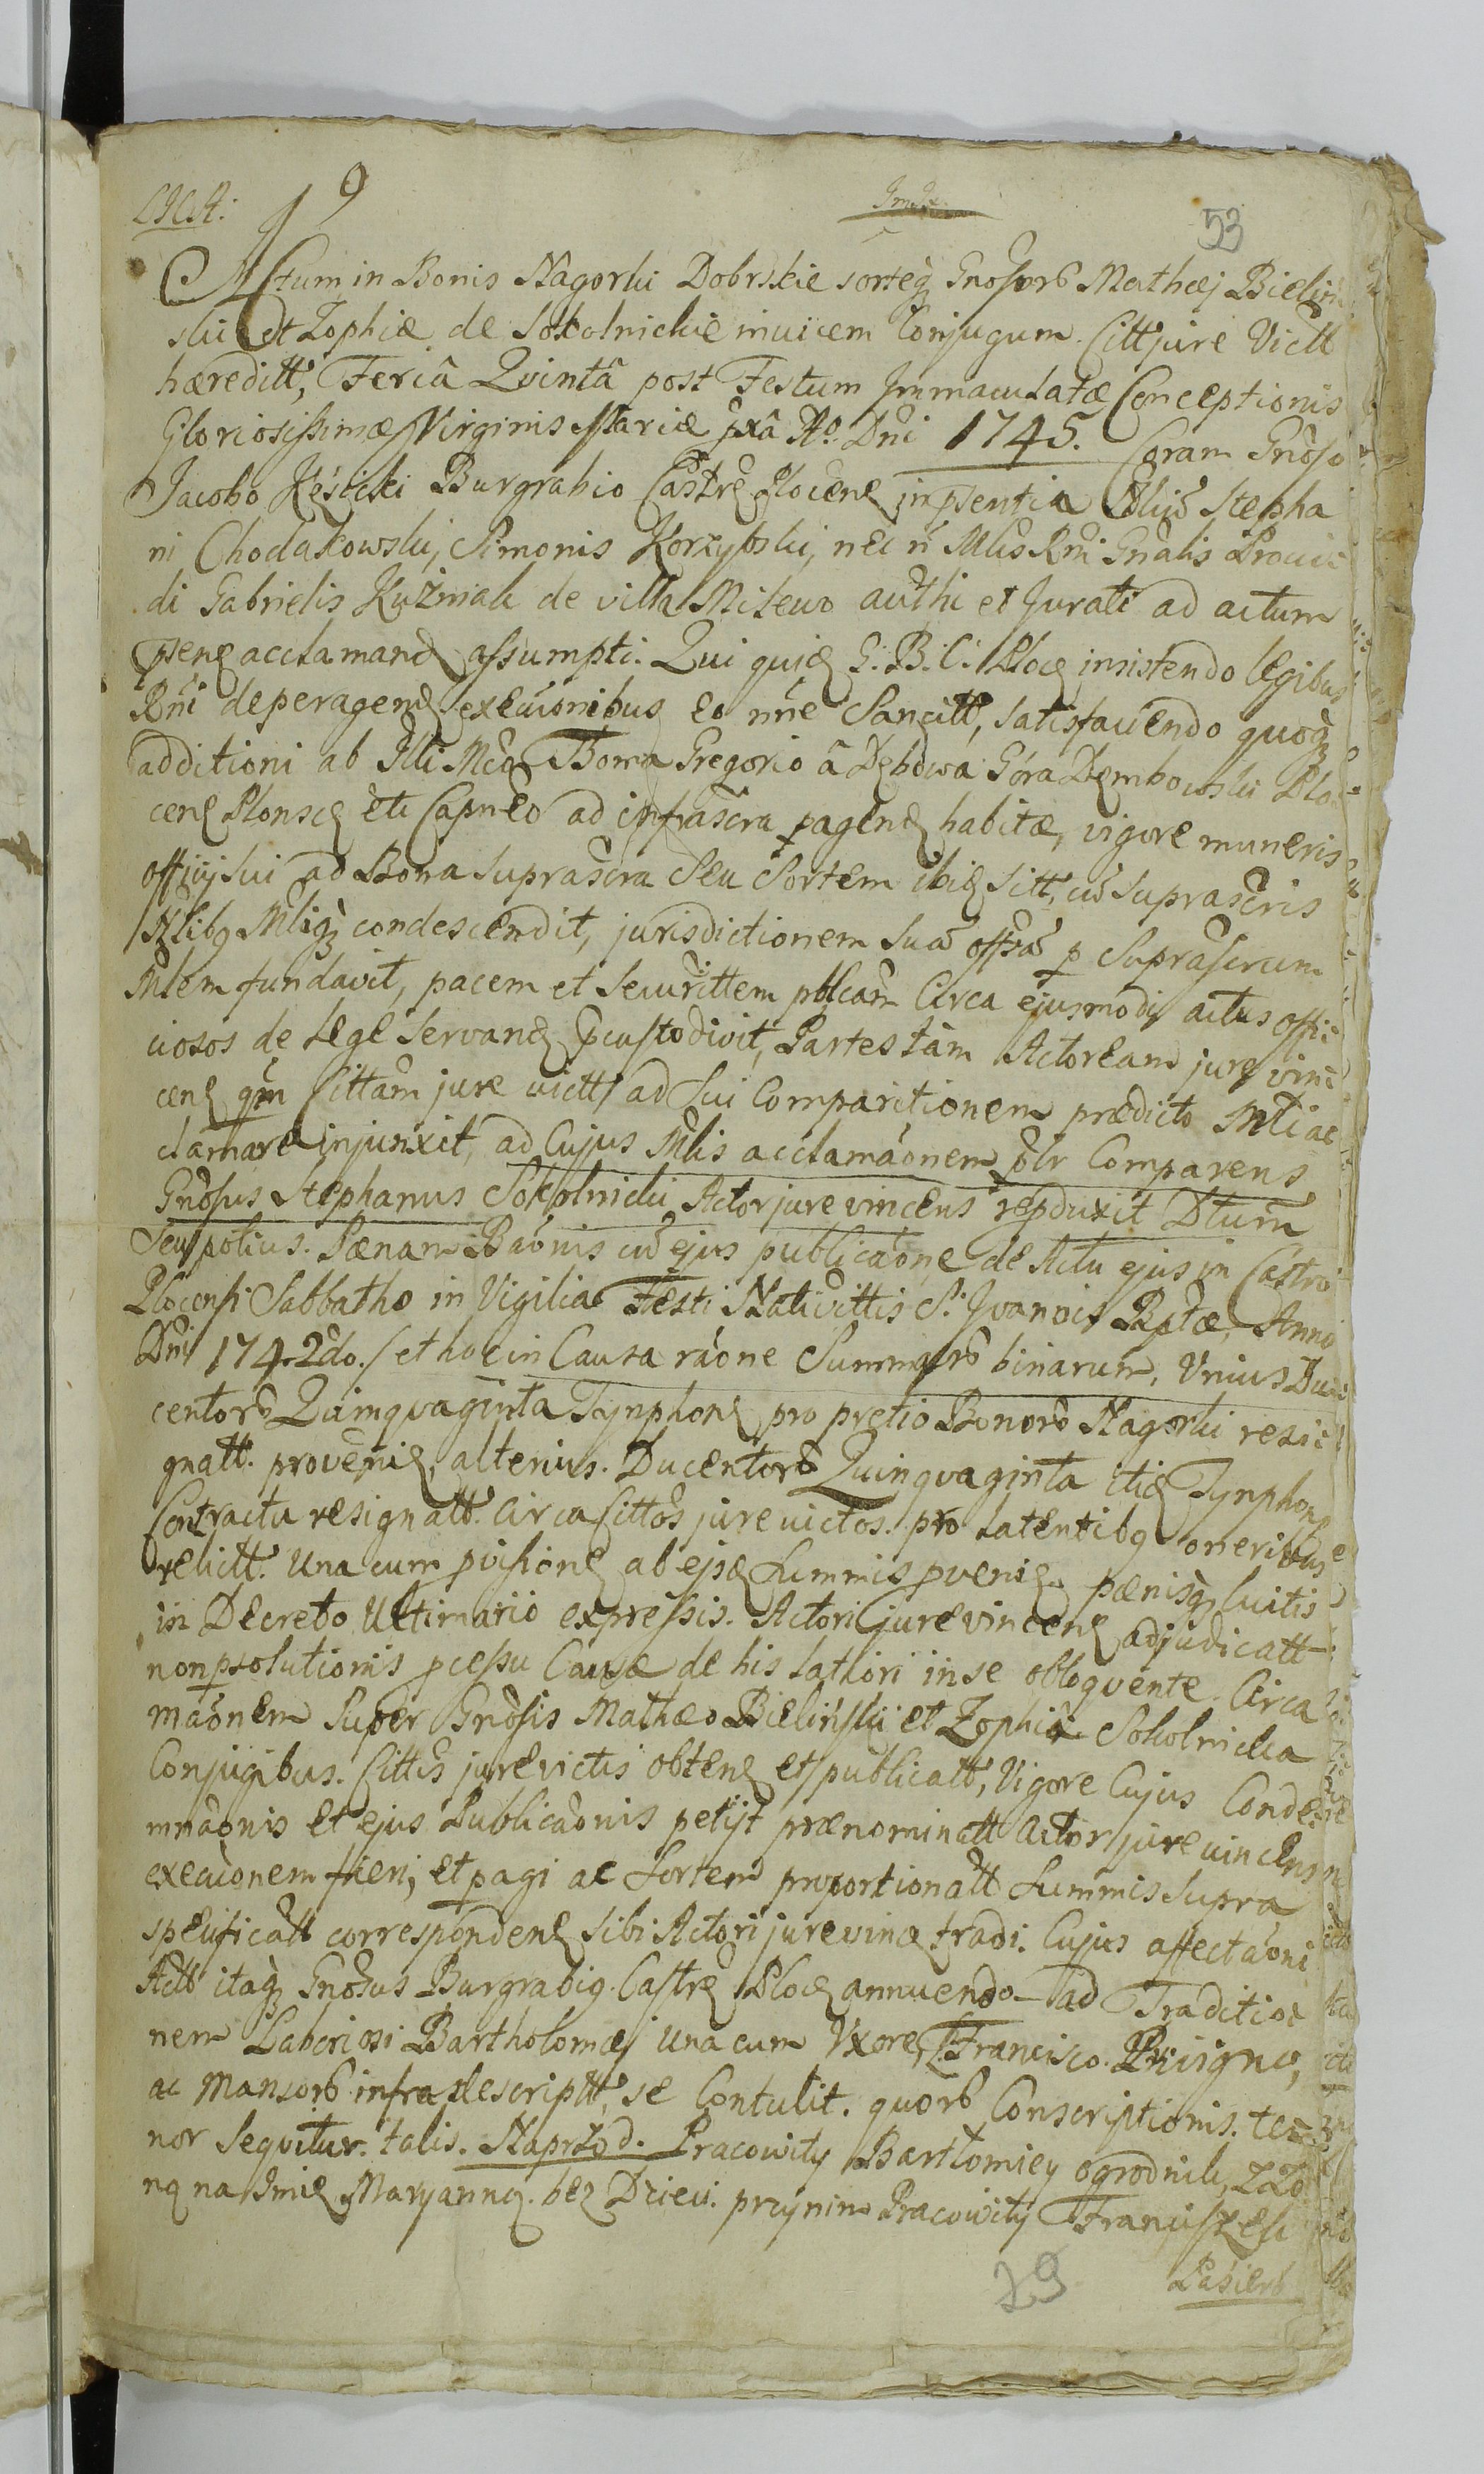 9
53
Actum in Bonis Nagorki Dobrskie sorteq Gnosorō Mathæj Bielin
ski et Zophiæ de Sokolnickie invicem Conjugum. Citt jure Victt
hæreditt, Feriâ Quintâ post Festum Immaculatæ Conceptionis
Gloriosissimæ Virginis Mariæ pxâ Aº Dni 1745. Coram Gnoso
Jacobo Kęsicki Burgrabio Castrę Plocenę in psentia Nbliū Stepha
ni Chodakowski, Simonis Korzybski, nec n Mlis Rni Gnalis Provi:
di Gabrielis Kuźniak de villa Milewo authi et Jurati ad actum
psenę acclamandę assumpti. Qui quidę G: B: C: Plocę insistendo legibus
Rni de peragendę execuionibus eo nne Sancitt, satisfaciendo quoq
additioni ab Illi Mco Toma Gregorio â Dębowa Góra Dembowski Plo:
cenę Plonscę etc Capneo ad infrascra pagenę habitæ, vigore muneris
officij sui ad Bona suprascra seu Sortem ibidę sitt, cū suprascris
Nlibq Mliq condescendit, jurisdictionem suā offsā p suprascrum
Mlem fundavit, pacem et securittem pblcam Circa ejusmodi actus offi:
ciosos de lege servandę pcustodivit, Partes tam Actoream jure vin:
cenę qm Cittam jure victt ad sui Comparitionem prædicto Mli ac
clamare injunxit, ad Cujus Mlis acclamaonem pblr Comparens
Gnosus Stephanus Sokolnicki Actor jure vincens repduxit Dtum
Seu potius. Pænam Baonis cū ejus publicaone de Actu ejus in Castro
Plocensi Sabbatho in Vigilia Festi Nativittis S. Joannis Baptæ, Anno
Dni 1742do. / et hoc in Causa raone Summarō binarum, Unius Du:
centorō Quinquaginta Tynphonę pro pretio Bonorō Nagorki resi:
gnatt. provenię, alterius. Ducentorō Quinquaginta itidę Tynphonę
Contractu resignatt. circa Cittos jure victos. pro latentibq oneribus
relictt. Una cum pvisionę ab ejsdę Summis pvenię. pænisq luitis
in Decreto Ultimario expressis. Actori jure vincenę adjudicatt
non psolutionis pcessu Causæ de his lathiori in se obloquente. Circa
maonem super Gnosis Mathæo Bielinski et Zophiâ Sokolnicka
Conjugibus. Cittis jure victis obtenę et publicatt, Vigore Cujus Conde:
mnaonis et ejus Publicaonis petijt prænominatt Actor jure vincens
execuionem fieri, et pagi ac Sortem proportionatt Summis supra
specificatt correspondenę sibi Actori jure vincę tradi. Cujus affectaoni
Actt itaq Gnosus Burgrabiq Castrę Plocę annuendo ad Traditio:
nem Laboriosi Bartholomæj una cum Uxore, Francisco. Privigno,
ac Mansorō infra descriptt, se Contulit. quorō Conscriptionis. te:
nor sequitur. talis. Naprzod. Pracowity Bartlomiey ogrodnik, z Zo
ną na Imię Maryanną. bez Dzieci. przy nim Pracowity Franciszek
29
Pasierb